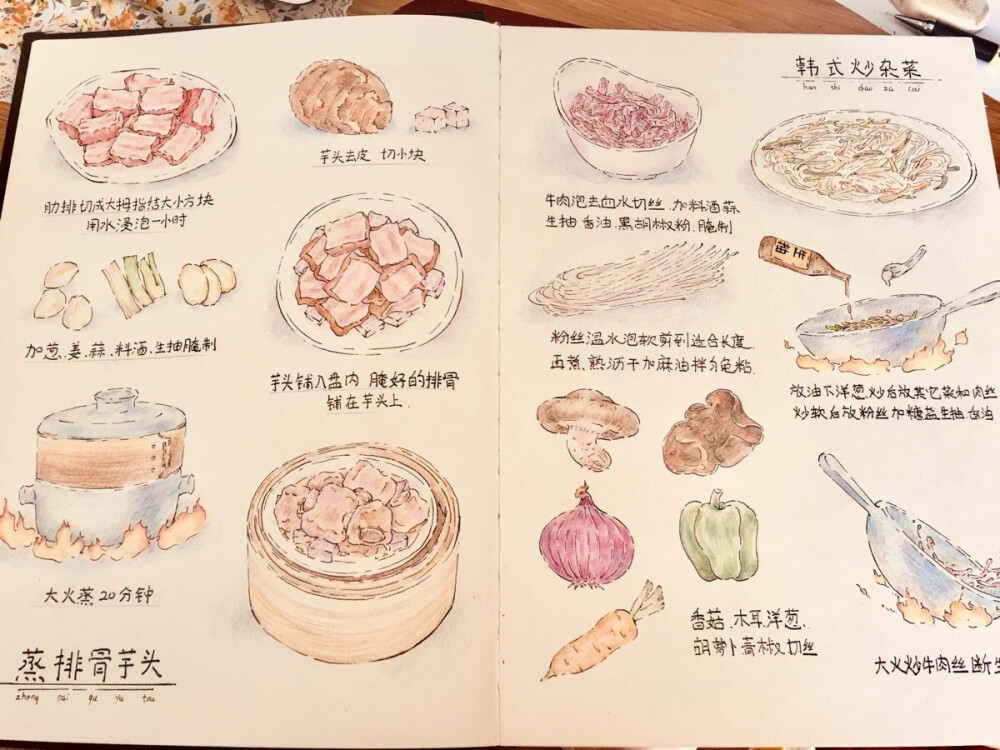 肋排切成大拇指结大小方块
用水浸泡一小时
芋头去皮 切小块
加葱、姜、蒜、料酒、生抽腌制
芋头铺入盘内 腌好的排骨
铺在芋头上.
大火蒸20分钟
蒸排骨芋头
zheng pai gu yu tou
韩式炒杂菜
han shi chao za cai
牛肉泡去血水切丝.加料酒蒜
生抽 香油.黑胡椒粉.腌制
粉丝温水泡软剪到适合长度.
再煮.熟沥干加麻油拌匀免粘.
放油下洋葱.炒后放其它菜和肉丝
炒软后放粉丝加糖盐生抽.香油
香菇.木耳.洋葱.
胡萝卜.青椒切丝
大火炒牛肉丝断生